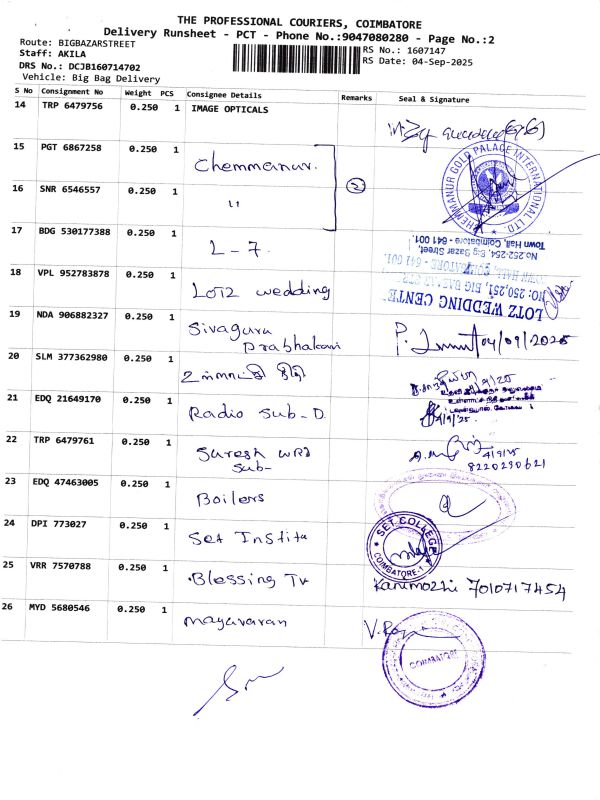 THE PROFESSIONAL COURIERS, COIMBATORE
Delivery Runsheet - PCT - Phone No.:9047080280 - Page No.:2
Route: BIGBAZARSTREET
RS No.: 1607147
Staff: AKILA
RS Date: 04-Sep-2025
DRS No.: DCJB160714702
Vehicle: Big Bag Delivery
S No Consignment No Weight PCS Consignee Details Remarks Seal & Signature
14 TRP 6479756 0.250 1 IMAGE OPTICALS
15 PGT 6867258 0.250 1 Chemmanur.
CHEMMANUR GOLD PALACE INTERNATIONAL LTD.
2
16 SNR 6546557 0.250 1 "
17 BDG 530177388 0.250 1 L-7.
No.252-254, Big Bazar Street,
Town Hall, Coimbatore - 641 001.
18 VPL 952783878 0.250 1 LOTZ wedding
LOTZ WEDDING CENTE
NO: 250,251, BIG BAZAR
TOWN HALL, COIMBATORE - 641 001.
19 NDA 906882327 0.250 1 Sivaguru
Prabhakani
P. 04/09/2025
20 SLM 377362980 0.250 1
21 EDQ 21649170 0.250 1 Radio Sub-D.
4/9/25
22 TRP 6479761 0.250 1 Suresh
Sub-
4/9/25
8220230621
23 EDQ 47463005 0.250 1 Boilers
24 DPI 773027 0.250 1 Set Institu
SET COLLEGE
COIMBATORE-1
25 VRR 7570788 0.250 1 Blessing Tv
Kanimozhi 7010717454
26 MYD 5680546 0.250 1 mayuvaran
COIMBATORE